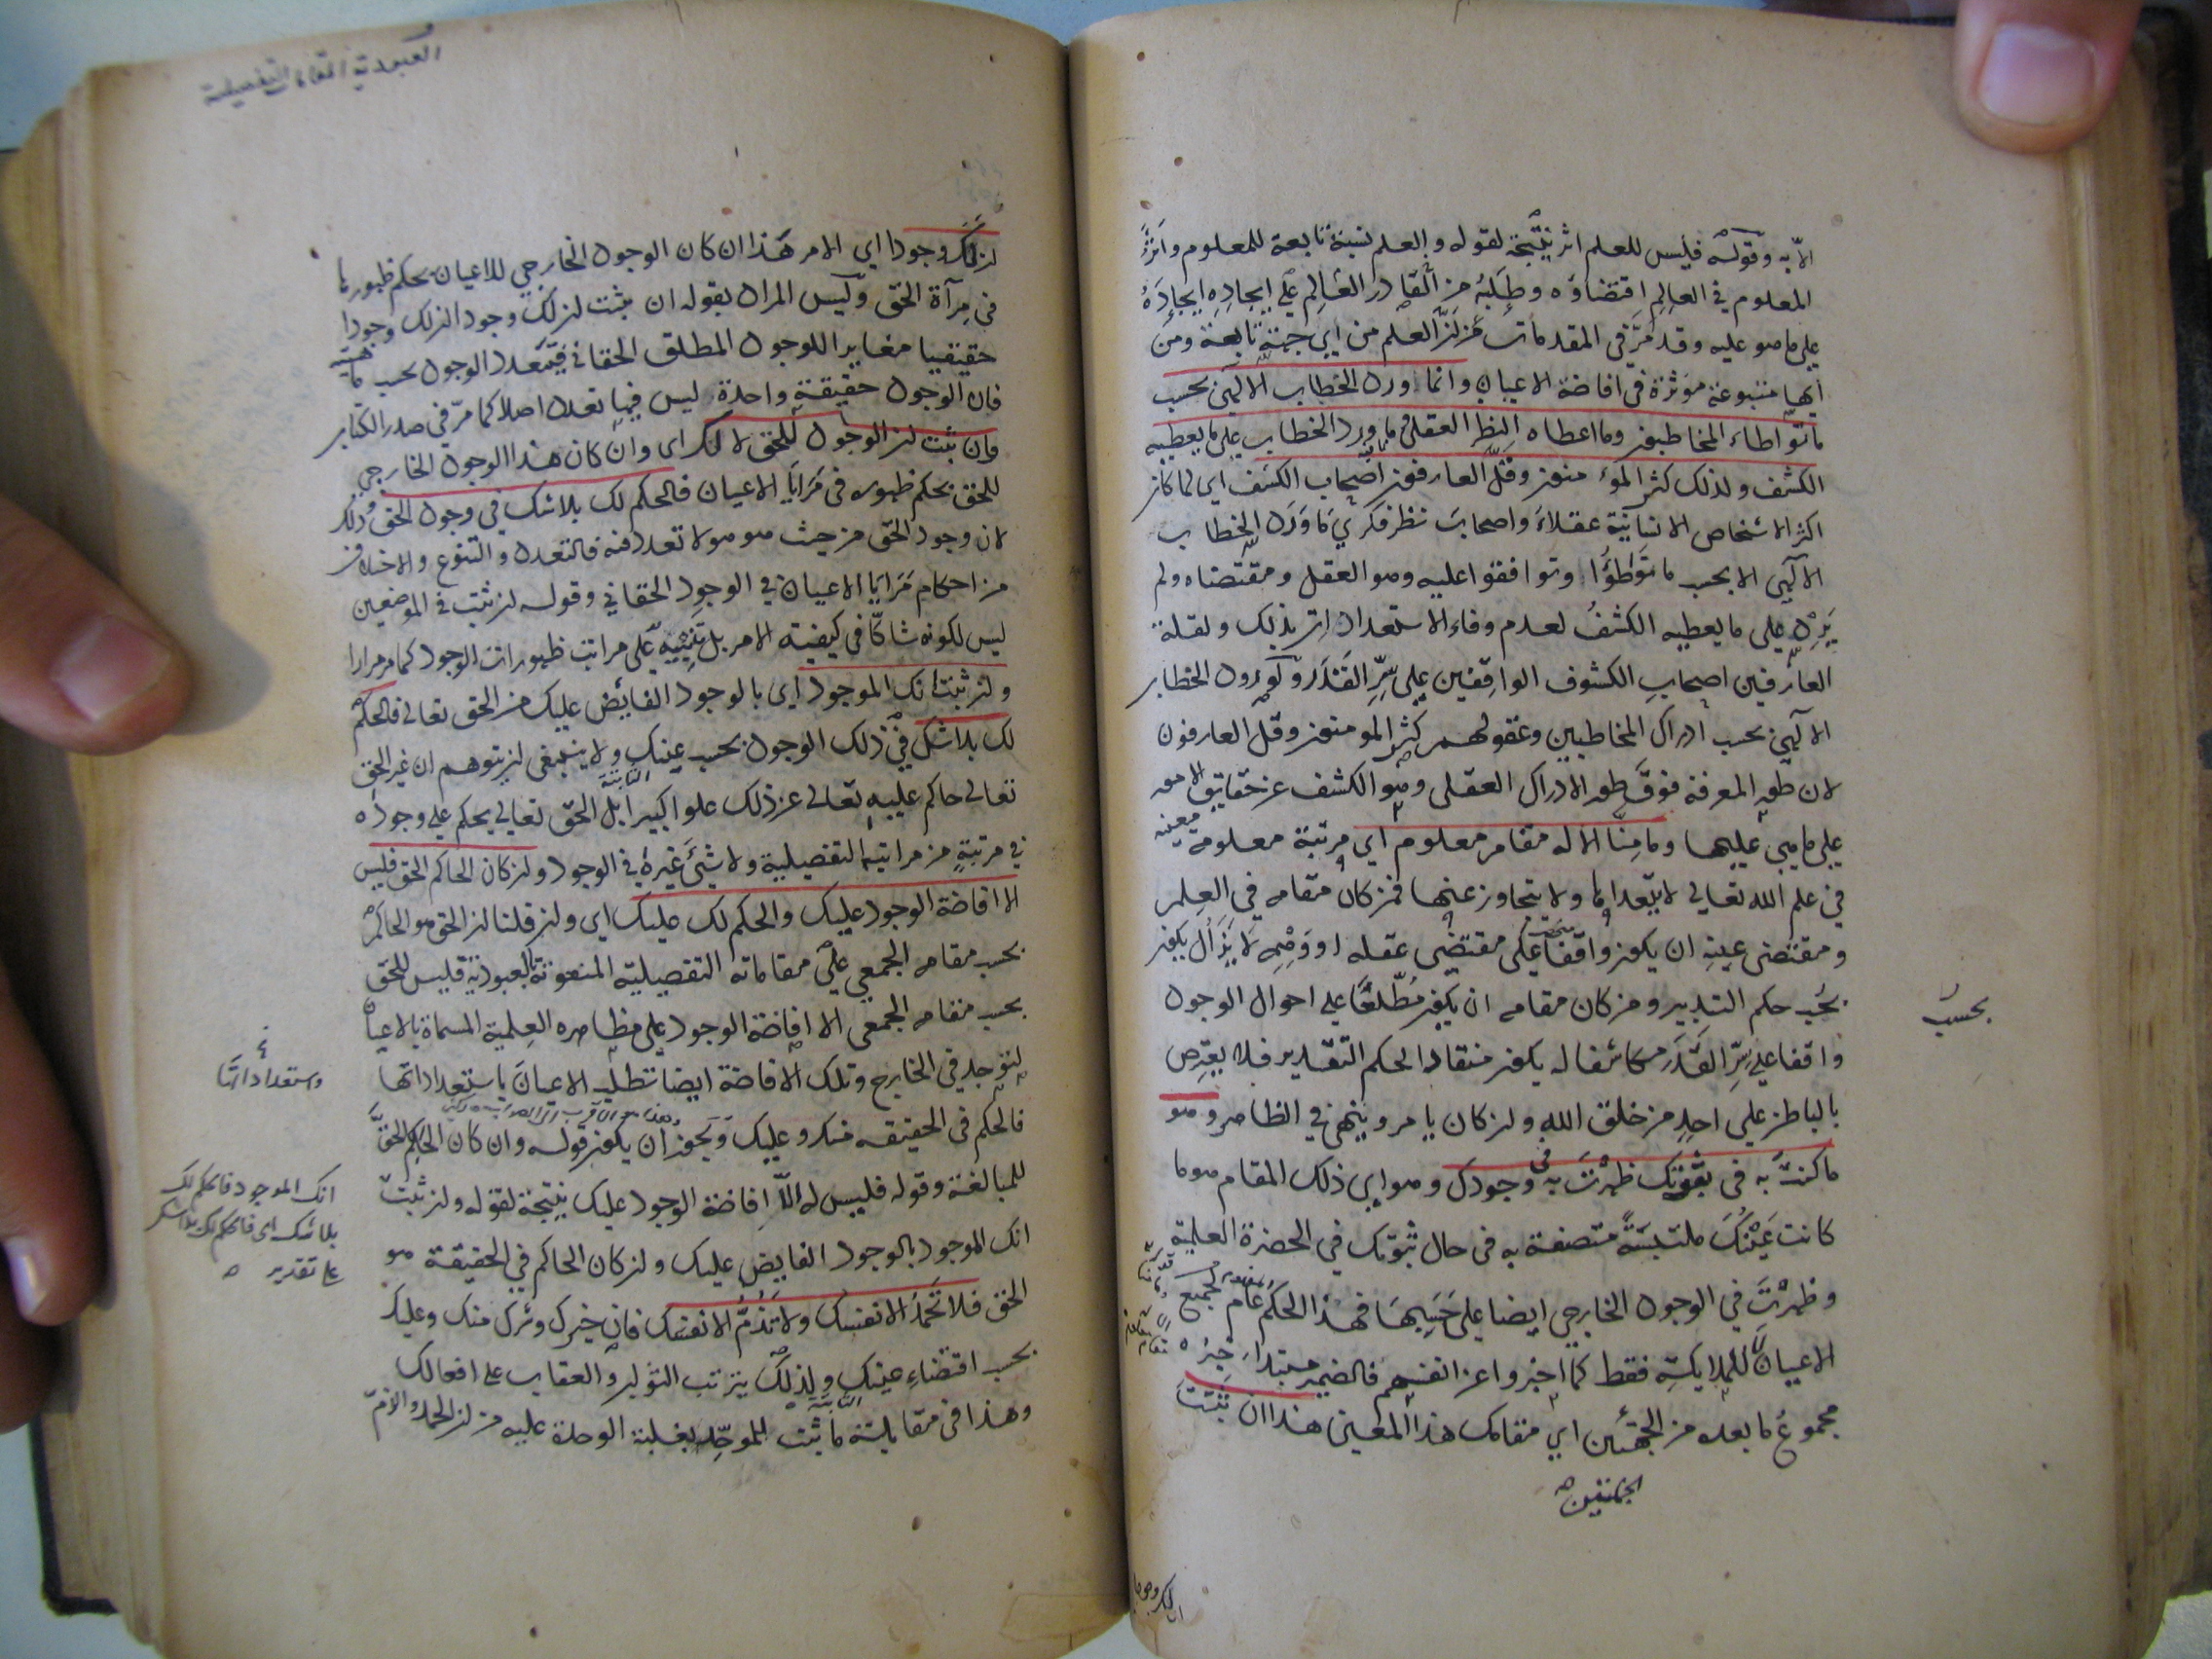 الا به وقوله فليس للعلم اثر نتيجة لقوله والعلم نسبة تابعة للمعلوم واثر
المعلوم في العالم اقتضاؤه وطلبه من القادر العالم على ايجاده ايجاده
على ما هو عليه وقد مر في المقدمات من ان العلم من اي جهة تابعة ومن
ايها متبوعة مؤثرة في افاضة الاعيان وانما ورد الخطاب الالهي بحسب
ما تواطاء المخاطبون وما اعطاه النظر العقلى ما ورد الخطاب على ما يعطيه
الكشف ولذلك كثر المؤمنون وقل العارفون اصحاب الكشف اي لما كان
اكثر الاشخاص الانسانية عقلاء واصحاب نظر فكري ما ورد الخطاب
الالهي الا بحسب ما تواطؤا وتوافقوا عليه وهو العقل ومقتضاه ولم
يرد على ما يعطيه الكشف لعدم وفاء الاستعدادات بذلك ولقلة
العارفين اصحاب الكشوف الواقفين على سر القدر ولورود الخطاب
الالهي بحسب ادراك المخاطبين وعقولهم كثر المومنون وقل العارفون
لان طور المعرفة فوق طور الادراك العقلى وهو الكشف عن حقايق الامور
على ما هي عليها وما منا الا له مقام معلوم اي مرتبة معلومة معينه
في علم الله تعالى لا يتعداها ولا يتجاوز عنها فمن كان مقامه في العلم
ومقتضى عينه ان يكون واقفا على مقتضى عقله او وهمه لا يزال يكون
تحت حكم التدبير ومن كان مقامه ان يكون مطلعا على احوال الوجود
بحسب
واقفا على سر القدر مكاشفا له يكون منقادا لحكم التقدير فلا يعترض
بالباطن على احد من خلق الله ولن كان يامر وينهى في الظاهر وهو
ما كنت به في ثبوتك ظهرت به في وجودك وهو اي ذلك المقام هو ما
كانت عينك ملتبسة متصفة به في حال ثبوتك في الحضرة العلمية
وظهرت في الوجود الخارجي ايضا على حسبها فهذا الحكم عام لجميع
الاعيان لا للملايكة فقط كما اخبروا عن انفسهم فالضمير مبتداء خبره
مجموع ما بعده من الجملتين اي مقامك هذا المعنى هذا ان ثبت
الجملتين
ان لك وجودا
العبودية المقامات التفصيلية
ان لك وجودا اي الامر هذا ان كان الوجود الخارجي للاعيان بحكم ظهورها
في مرآة الحق وليس المراد بقوله ان ثبت ان لك وجودا ان لك وجودا
حقيقيا مغايرا للوجود المطلق الحقاني فيتعدد الوجود بحسب ماهيته
فان الوجود حقيقة واحدة ليس فيها تعدد اصلا كما مر في صدر الكتاب
وان ثبت ان الوجود للحق لا لك اى وان كان هذا الوجود الخارجي
للحق بحكم ظهوره في مرايا الاعيان فالحكم لك بلا شك في وجود الحق وذلك
لان وجود الحق من حيث هو هو لا تعدد فيه فالتعدد والتنوع والاختلاف
من احكام مرايا الاعيان في الوجود الحقاني وقوله ان ثبت في الموضعين
ليس لكونه شاكا في كيفية الامر بل تنبيه على مراتب ظهورات الوجود كما مر مرارا
ولن ثبت انك الموجود اى بالوجود الفايض عليك من الحق تعالى فالحكم
لك بلا شك في ذلك الوجود بحسب عينك ولا ينبغى ان يتوهم ان غير الحق
الثابتة
تعالى حاكم عليه تعالى عن ذلك علوا كبيرا بل الحق تعالى يحكم على وجوده
في مرتبة من مراتبه التفصيلية ولا شئ غيره في الوجود ولن كان الحاكم الحق فليس
الا افاضة الوجود عليك والحكم لك عليك اى ولن قلنا ان الحق هو الحاكم
بحسب مقامه الجمعي على مقاماته التفصيلية المنعوتة بالعبودية فليس للحق
بحسب مقامه الجمعى الا افاضة الوجود على مظاهره العلمية المسماة بالاعيان
لتوجد في الخارج وتلك الافاضة ايضا تطلب الاعيان باستعداداتها
واستعداداتها
فالحكم في الحقيقه منك وعليك ويجوز ان يكون قوله وان كان الحاكم الحق
للمبالغة وقوله فليس له الا افاضة الوجود عليك نتيجة لقوله ولن ثبت
انك الموجود فالحكم لك
بلا شك اى فالحكم لك بلا شك
على تقدير
انك الموجود بالوجود الفايض عليك ولن كان الحاكم في الحقيقة هو
الحق فلا تحمد الا نفسك ولا تذم الا نفسك فان خيرك وشرك منك وعليك
بحسب اقتضاء عينك ولذلك يترتب الثواب والعقاب على افعالك
الثابتة
وهذا في مقابلة ما ثبت للموحد بغلبة الوحدة عليه من ان الحمد والذم